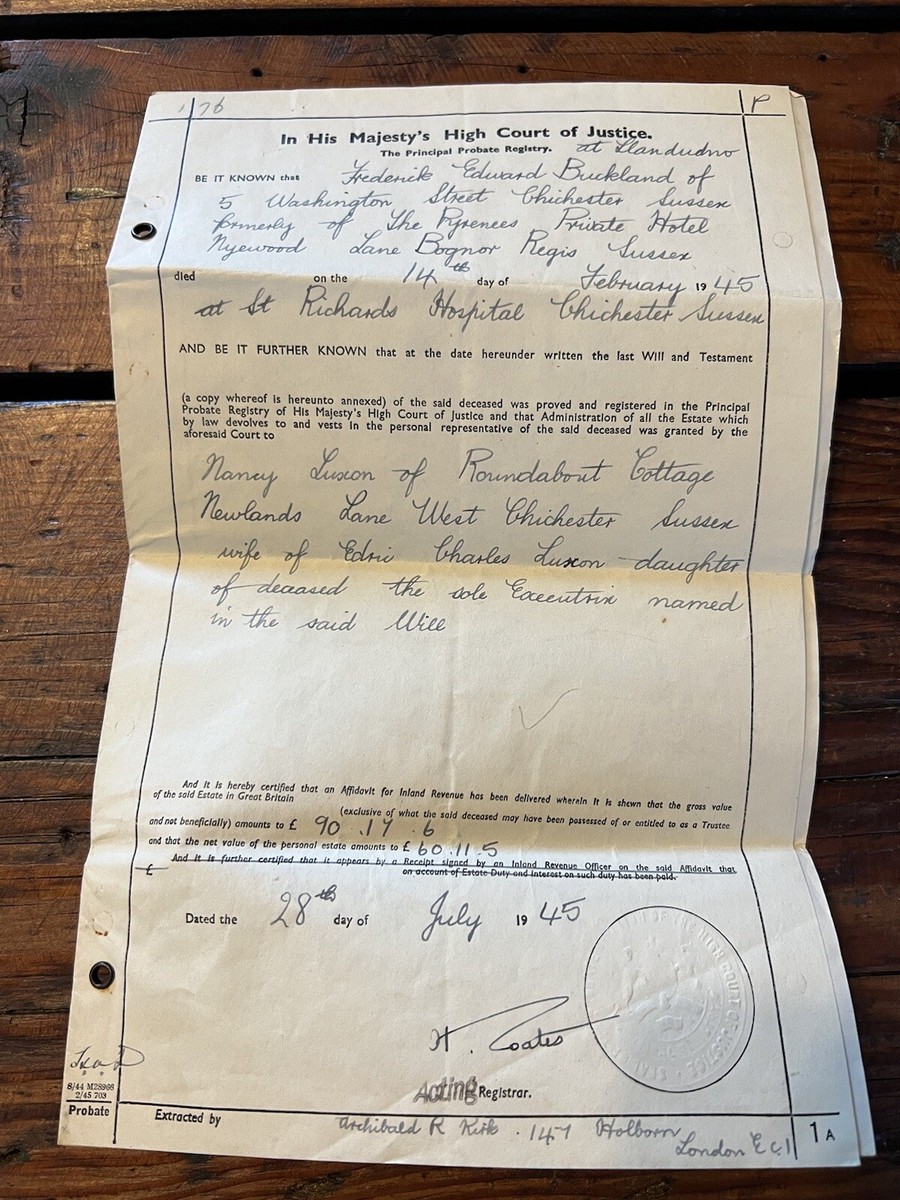 1 76 P
In His Majesty's High Court of Justice.
The Principal Probate Registry. at Llandudno
BE IT KNOWN that Frederick Edward Buckland of
5 Washington Street Chichester Sussex
formerly of The Pyrenees Private Hotel
Nyewood Lane Bognor Regis Sussex
died on the 14th day of February 1945
at St Richards Hospital Chichester Sussex
AND BE IT FURTHER KNOWN that at the date hereunder written the last Will and Testament
(a copy whereof is hereunto annexed) of the said deceased was proved and registered in the Principal
Probate Registry of His Majesty's High Court of Justice and that Administration of all the Estate which
by law devolves to and vests in the personal representative of the said deceased was granted by the
aforesaid Court to
Nancy Luxon of Roundabout Cottage
Newlands Lane West Chichester Sussex
wife of Edric Charles Luxon daughter
of deceased the sole Executrix named
in the said Will
And it is hereby certified that an Affidavit for Inland Revenue has been delivered wherein it is shewn that the gross value
of the said Estate in Great Britain
(exclusive of what the said deceased may have been possessed of or entitled to as a Trustee
and not beneficially) amounts to £ 90.17.6
and that the net value of the personal estate amounts to £ 60.11.5
And it is further certified that it appears by a Receipt signed by an Inland Revenue Officer on the said Affidavit that
£ on account of Estate Duty and interest on such duty has been paid.
Dated the 28th day of July 1945
H. Coates
Acting Registrar.
8/44 M28968
2/45 703
Probate
Extracted by Archibald R Kirk . 147 Holborn
London E C.1
1A